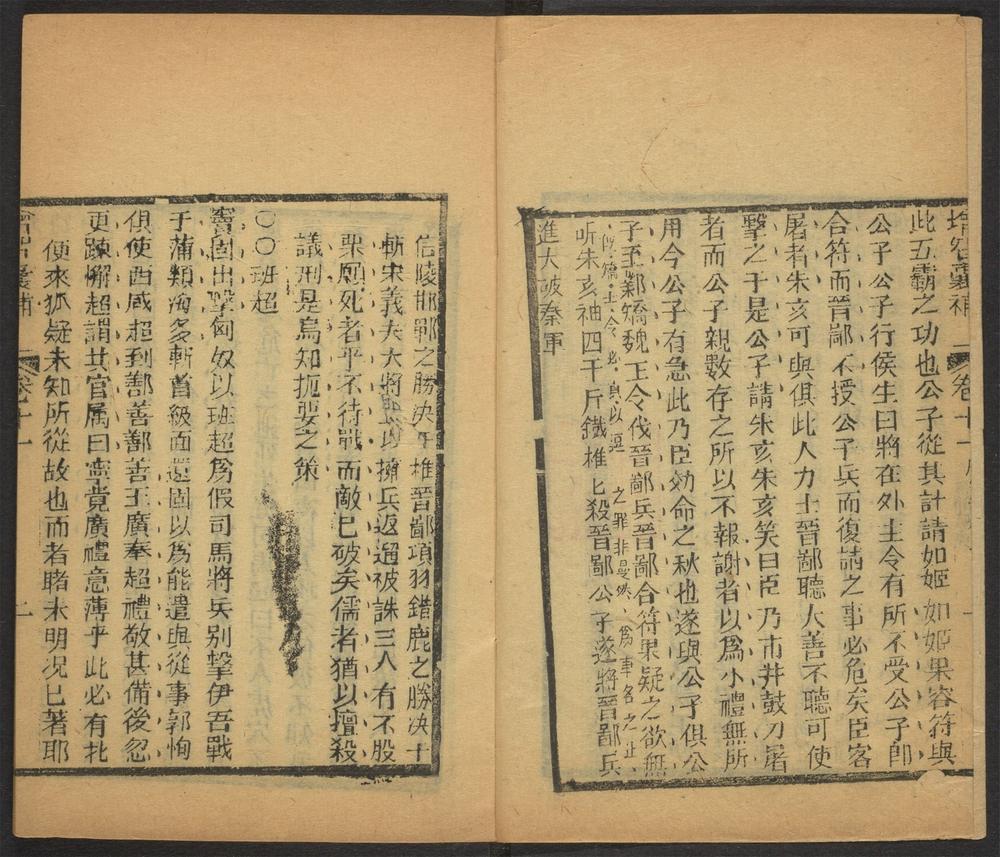 增智囊補 卷十一
此五霸之功也公子從其計請如姬如姬果容符與
公子公子行侯生曰將在外主令有所不受公子卽
合符而晉鄙不授公子兵而復請之事必危矣臣客
屠者朱亥可與俱此人力士晉鄙聽大善不聽可使
擊之于是公子請朱亥朱亥笑曰臣乃市井鼓刀屠
者而公子親數存之所以不報謝者以爲小禮無所
用今公子有急此乃臣効命之秋也遂與公子俱公
子至鄴矯魏王令伐晉鄙兵晉鄙合符果疑之欲無
聽朱亥袖四千斤鐵椎匕殺晉鄙公子遂將晉鄙兵
進大破秦軍
信陵邯鄲之勝決于椎晉鄙項羽錯鹿之勝決于
斬宋義夫大將擁兵返遛被誅三人有不股
栗願死者乎不待戰而敵已破矣儒者猶以擅殺
議刑是烏知扼要之策
〇〇班超
竇固出擊匈奴以班超爲假司馬將兵别擊伊吾戰
于蒲類海多斬首級而還固以爲能遣與從事郭恂
俱使西域超到鄯善鄯善王廣奉超禮敬甚備後忽
更踈懈超謂其官属曰寧覺廣禮意薄乎此必有北
使來狐疑未知所從故也而者睹未明况已著耶
智囊補 卷十一 二